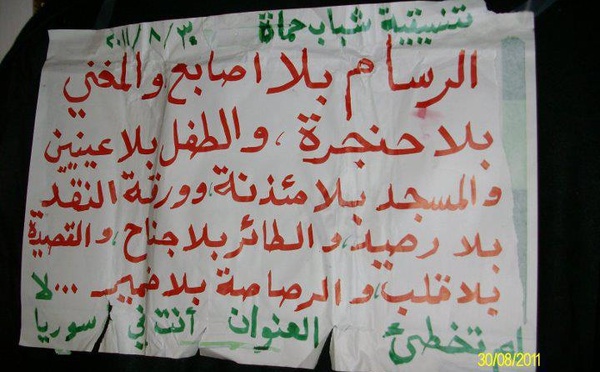 تنسيقية شباب حماة ٢٠١١/٨/٣٠
الرسام بلا اصابع، والمغني
بلا حنجرة، والطفل بلا عينين
والمسجد بلا مئذنة، وورقة النقد
بلا رصيد، والطائر بلا جناح، والقصيدة
بلا قلب، والرصاصة بلا ضمير ... لا
لم تخطئ العنوان أنت في سوريا
30/08/2011